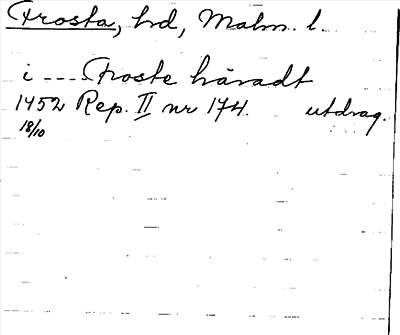 Frosta, hd, Malm. l.
i --- Froste häradt
1452 Rep. II nr 174. utdrag.
18/10